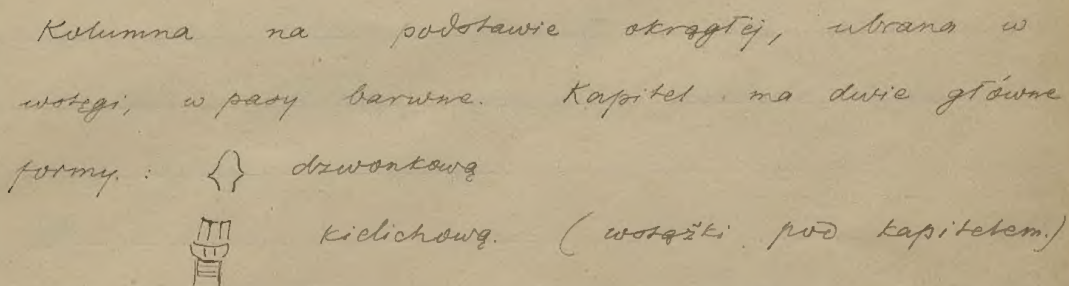 Kolumna na podstawie okrągłéj, ubrana w
wstęgi, w pasy barwne. Kapitel ma dwie główne
formy. : dzwonkową
kielichową. (wstążki pod kapitelem.)